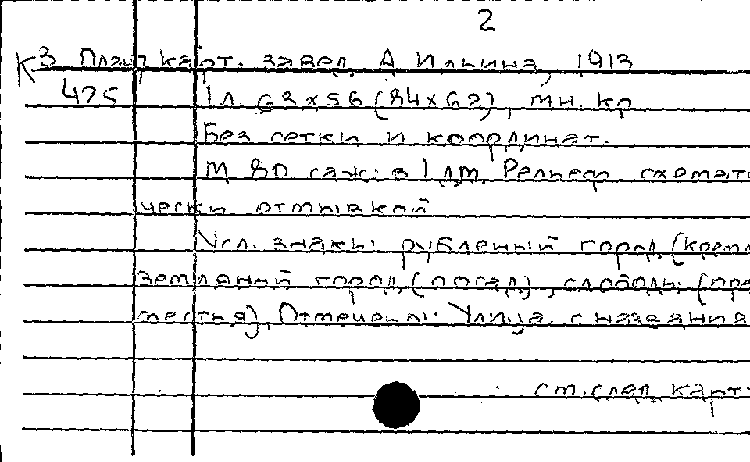 2
К 3 Плац карт. завед. А Ильина, 1913
475 1 л. 62х56 (84х62), мн. кр
Без сетки и координат.
М 80 саж: в 1 дм. Рельеф схемат
чески отмывкой
Усл. знаки: рубленый город (кремл
земляной город (посад), слободы (пре
местья). Отмечены: Улица с названия
см. след. карт.